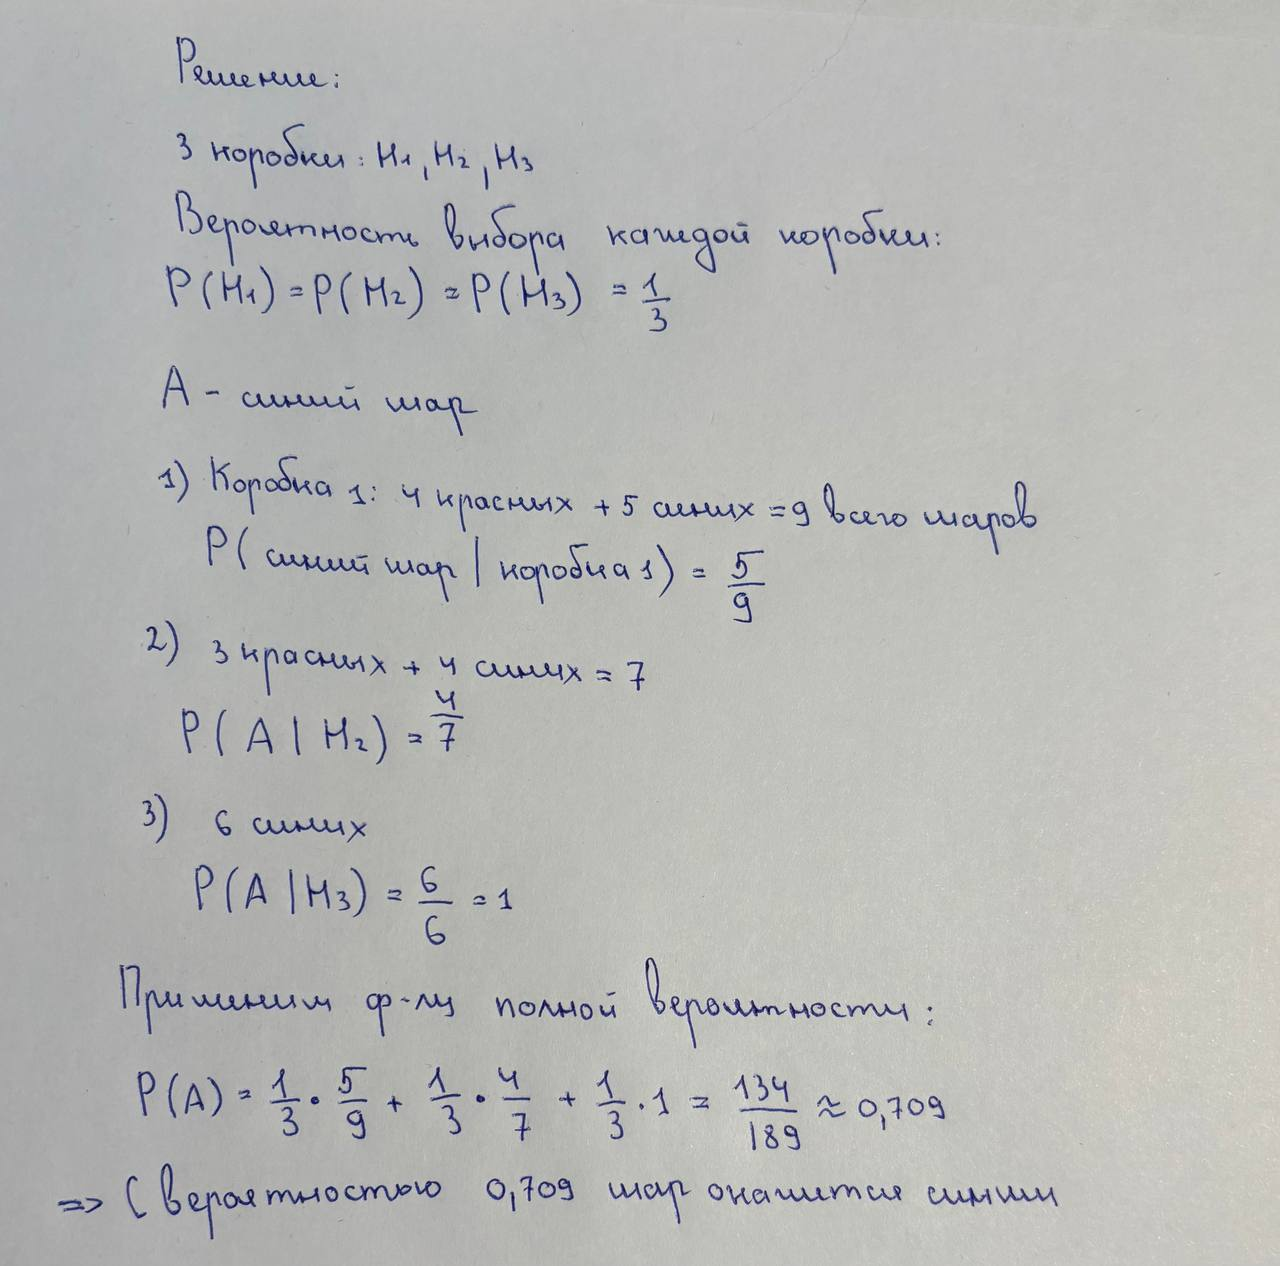 Решение:
3 коробки: H₁, H₂, H₃
Вероятность выбора каждой коробки:
P(H₁) = P(H₂) = P(H₃) = 1/3
A - синий шар
1) Коробка 1: 4 красных + 5 синих = 9 всего шаров
P(синий шар | коробка 1) = 5/9
2) 3 красных + 4 синих = 7
P(A | H₂) = 4/7
3) 6 синих
P(A | H₃) = 6/6 = 1
Применим ф-лу полной вероятности:
P(A) = 1/3 · 5/9 + 1/3 · 4/7 + 1/3 · 1 = 134/189 ≈ 0,709
=> С вероятностью 0,709 шар окажется синим